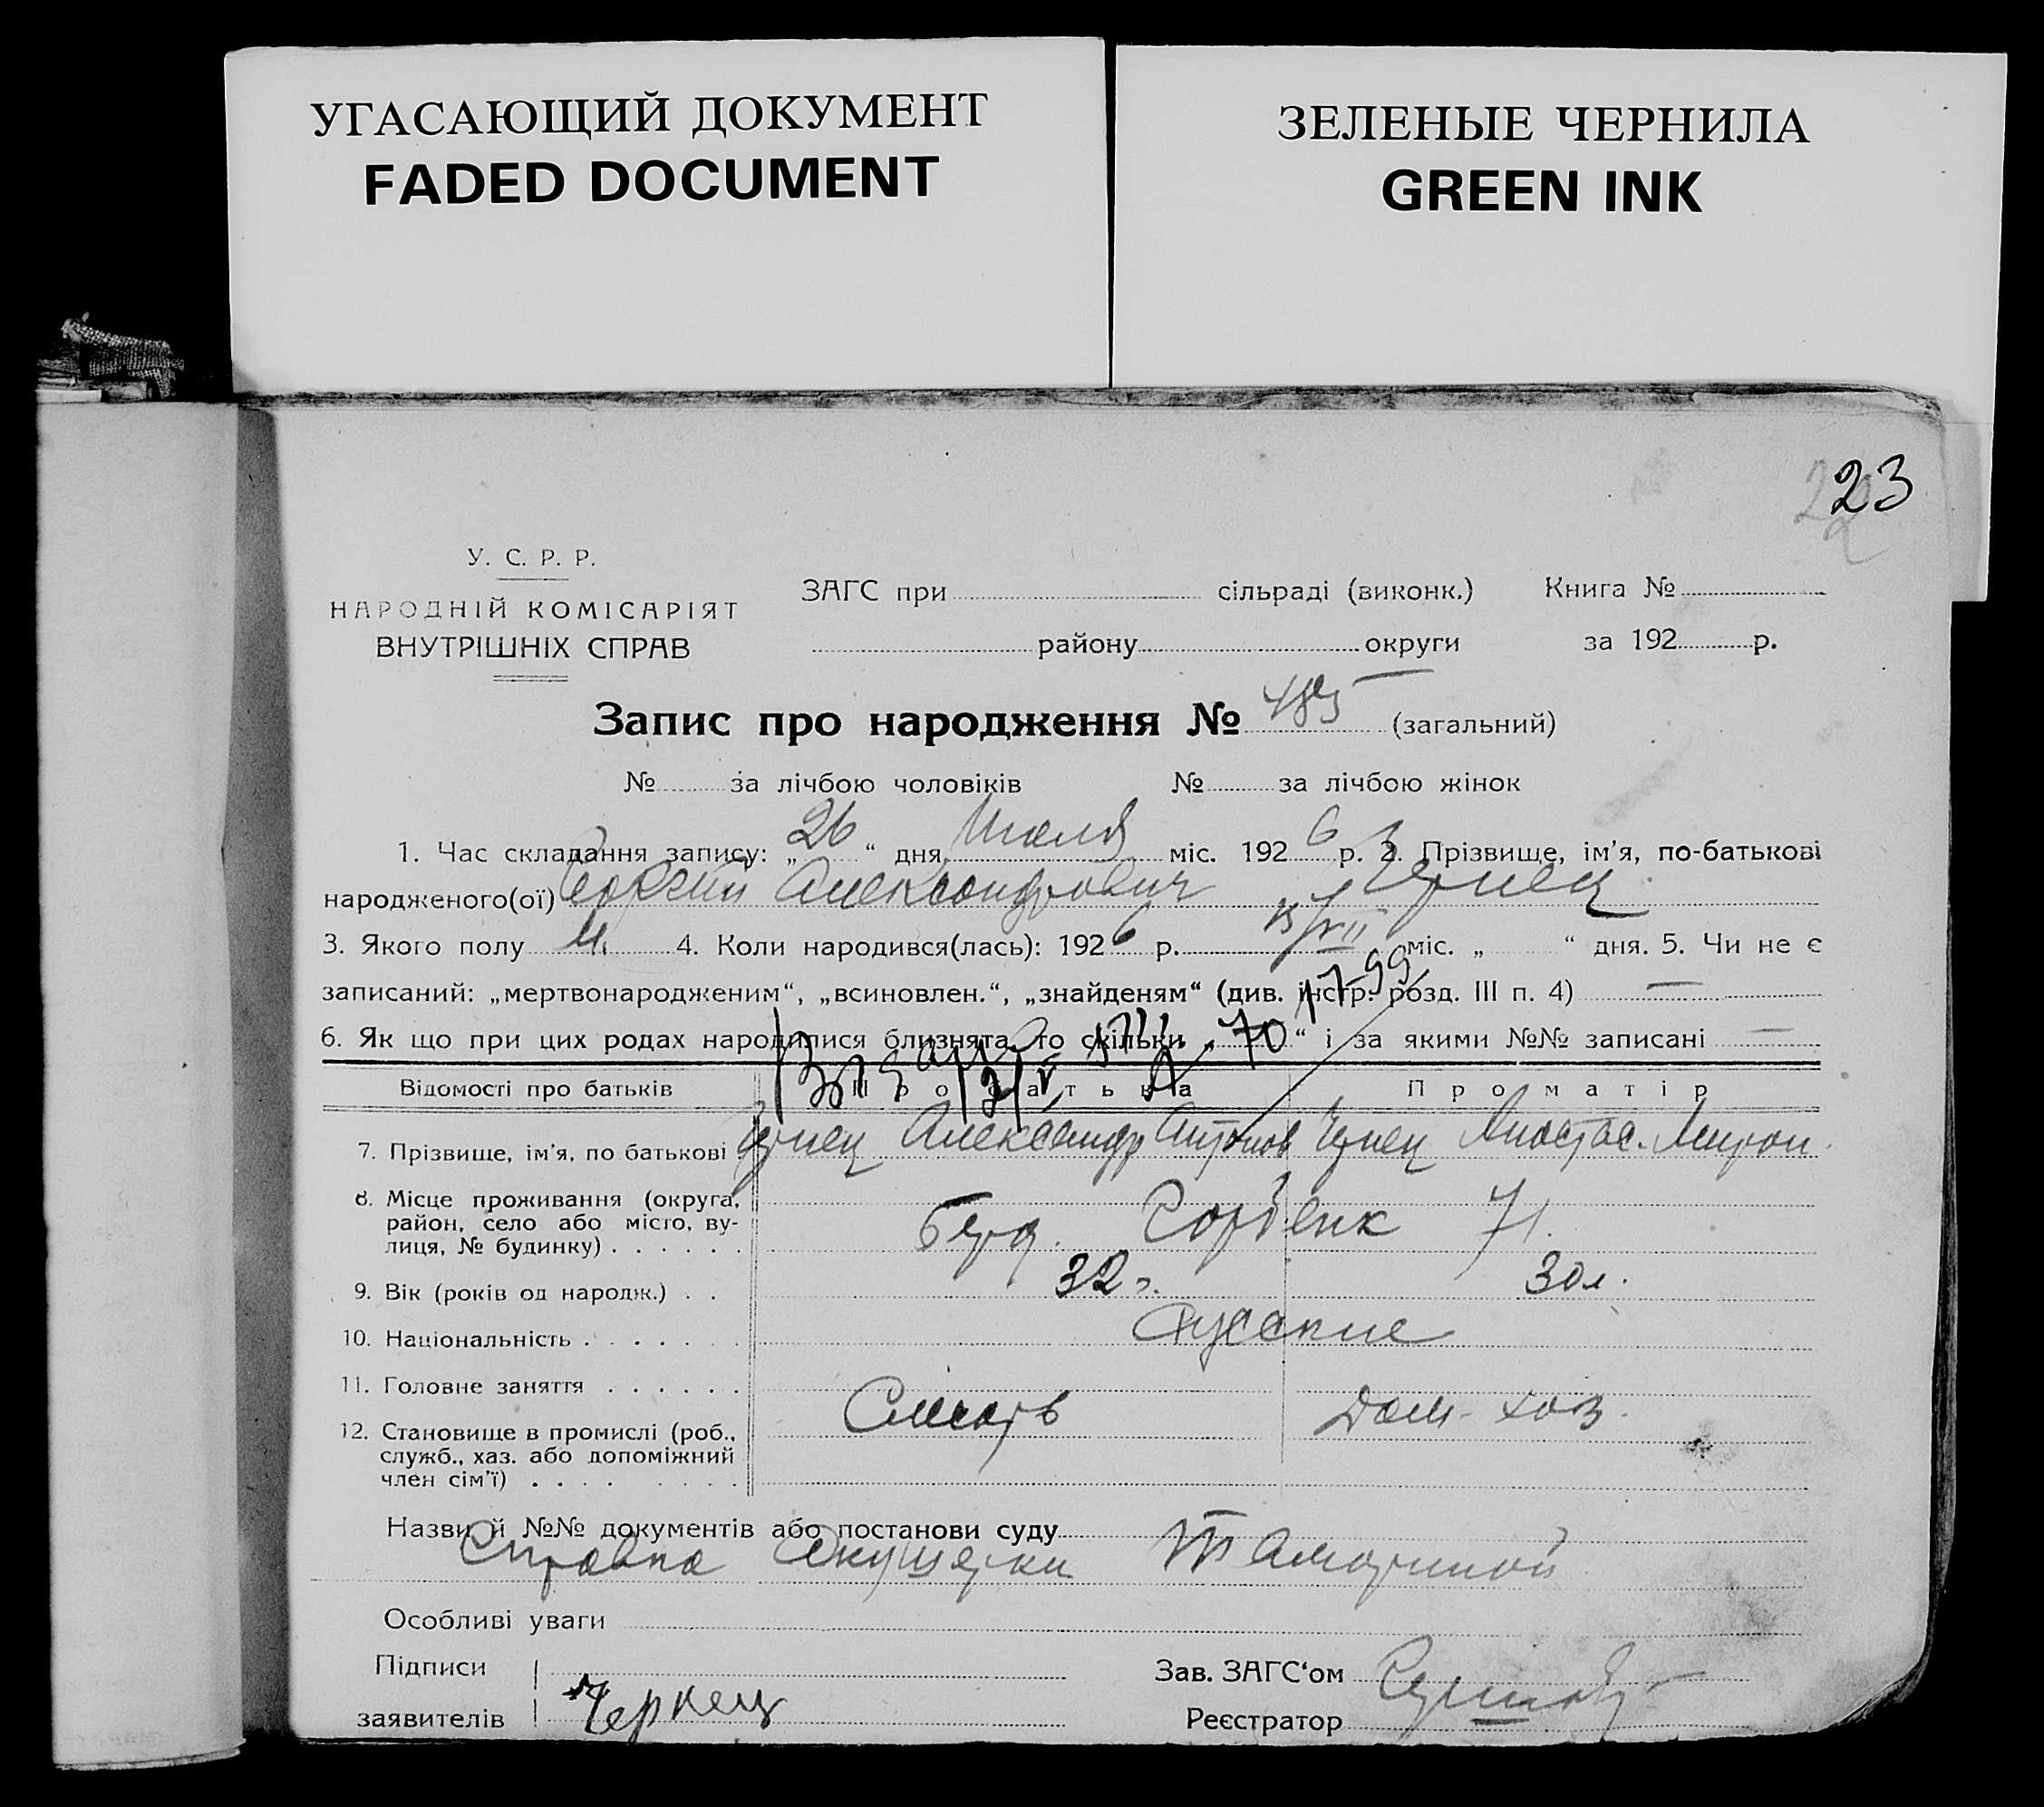 УГАСАЮЩИЙ ДОКУМЕНТ
FADED DOCUMENT
ЗЕЛЕНЫЕ ЧЕРНИЛА
GREEN INK
23
У. С. Р. Р.
НАРОДНІЙ КОМІСАРІЯТ
ВНУТРІШНІХ СПРАВ
ЗАГС при сільраді (виконк.) Книга №
району округи за 192 р.
Запис про народження № 485 (загальний)
№ за лічбою чоловіків № за лічбою жінок
1. Час складання запису: „26“ дня Июля міс. 1926 р. 2. Прізвище, ім'я, по-батькові
народженого(ої) Александрович Чернец
3. Якого полу М. 4. Коли народився(лась): 1926 р. VII міс. „ “ дня. 5. Чи не є
записаний: „мертвонародженим“, „всиновлен.“, „знайденям“ (див. інстр. розд. III п. 4) —
6. Як що при цих родах народилися близнята, то скільки „ “ і за якими №№ записані —
Відомості про батьків Про батька Про матір
7. Прізвище, ім'я, по батькові Чернец Александр Антонов Чернец Анастас. Мирон.
8. Місце проживання (округа, район, село або місто, ву-
лиця, № будинку) Берд. 71.
9. Вік (років од народж.) 32 г. 30 л.
10. Національність Русские
11. Головне заняття
12. Становище в промислі (роб., Слесарь Дом. хоз.
служб., хаз. або допоміжний
член сім'ї)
Назви й №№ документів або постанови суду
Справка Акушерки
Особливі уваги
Підписи
заявителів Чернец
Зав. ЗАГС'ом
Реєстратор